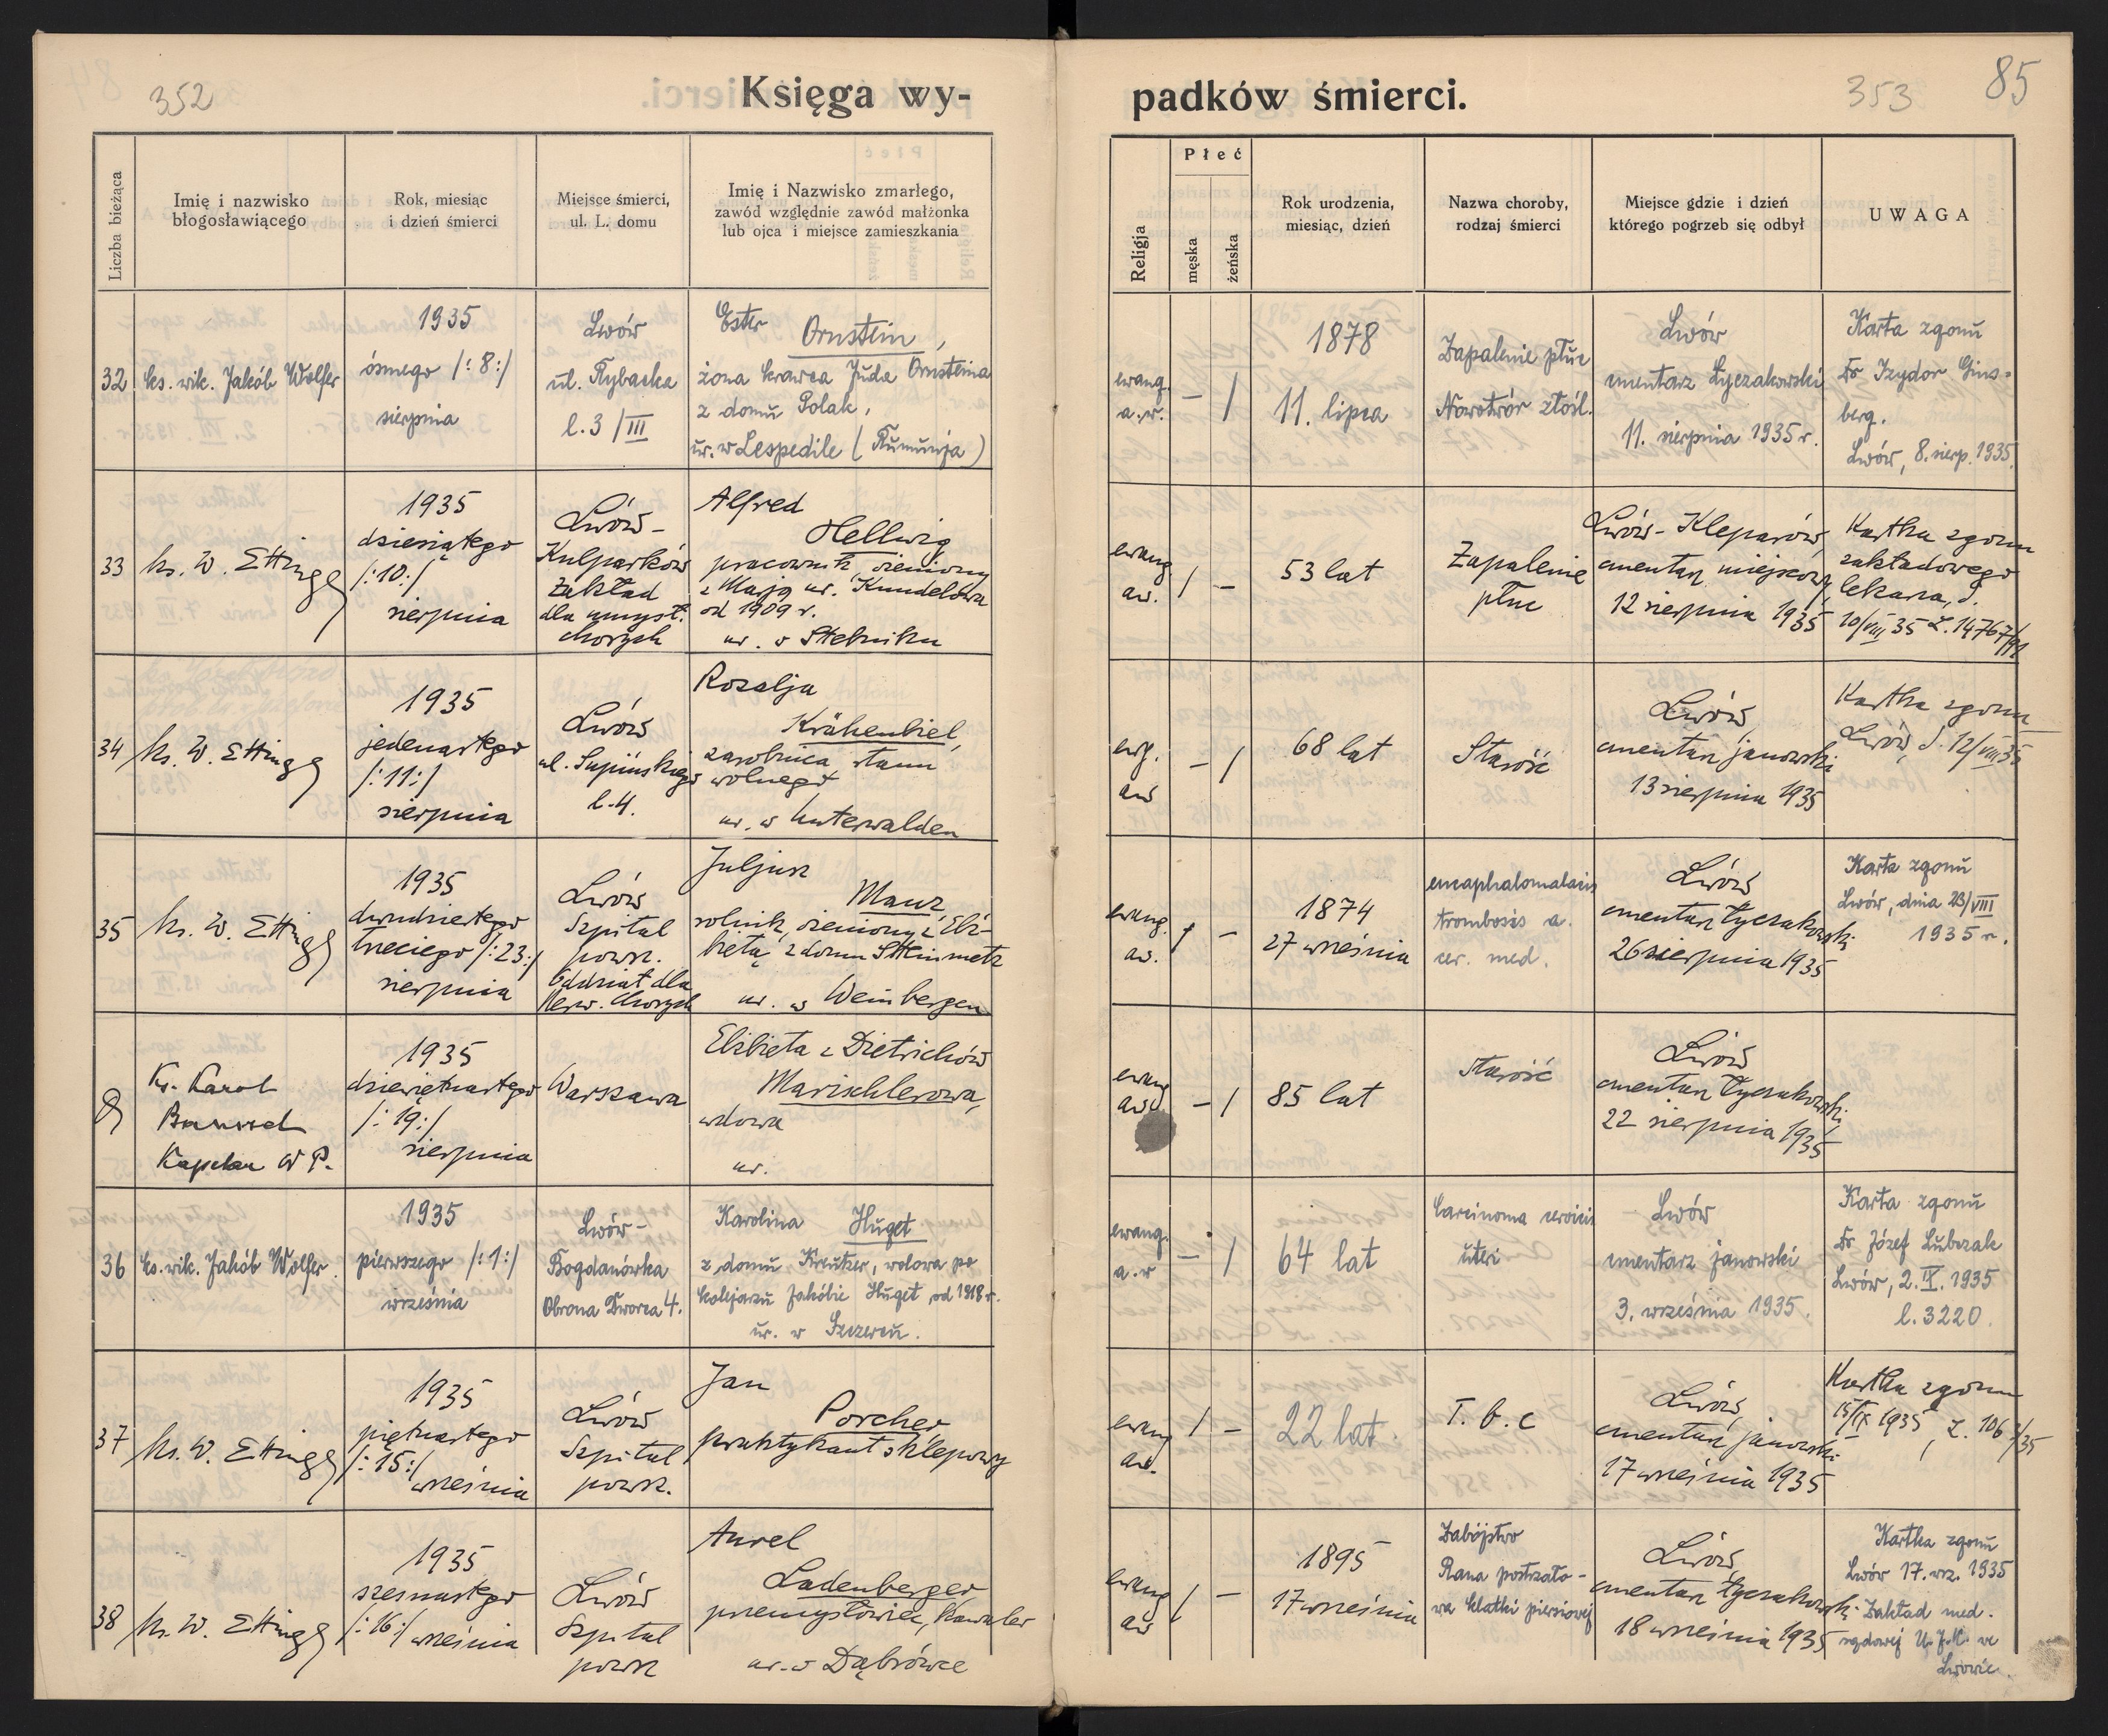 352
Księga wy-
padków śmierci.
353
85
Liczba bieżąca
Imię i nazwisko
błogosławiącego
Rok, miesiąc
i dzień śmierci
Miejsce śmierci,
ul. L. domu
Imię i Nazwisko zmarłego,
zawód względnie zawód małżonka
lub ojca i miejsce zamieszkania
Religja
Płeć
męska
żeńska
Rok urodzenia,
miesiąc, dzień
Nazwa choroby,
rodzaj śmierci
Miejsce gdzie i dzień
którego pogrzeb się odbył
UWAGA
32
ks. wik. Jakób Wolfer
1935
ósmego /:8:/
sierpnia
Lwów
ul. Rybacka
l. 3 / III
Ester
Ornstein,
żona krawca Juda Ornsteina
z domu Polak,
ur. w Lespedile (Rumunja)
ewang.
a.w.
– /
1878
11. lipca
Zapalenie płuc
Nowotwór złośl.
Lwów
cmentarz Łyczakowski
11. sierpnia 1935 r.
Karta zgonu
Dr Izydor Gins-
berg.
Lwów, 8. sierp. 1935.
33
ks. W. Ettinger
1935
dziesiątego
/:10:/
sierpnia
Lwów-
Kulparków
Zakład
dla umysł.
chorych
Alfred
Hellwig
pracownik, żeniony
z Marją ur. Kundelowa
od 1909 r.
ur. w Stebniku
ewang
aw.
/ –
53 lat
Zapalenie
płuc
Lwów-Kleparów
cmentarz miejscowy
12 sierpnia 1935
Kartka zgonu
zakładowego
lekarza, d.
10/VIII 35 L. 14767/
34
ks. W. Ettinger
1935
jedenastego
/:11:/
sierpnia
Lwów
ul. Supińskiego
l. 4.
Rozalja
Krähenbiel,
zarobnica stanu
wolnego
ur. w Unterwalden
aw
– /
68 lat
Starość
Lwów
cmentarz janowski
13 sierpnia 1935
Kartka zgonu
Lwów, d. 12/VIII 35
35
ks. W. Ettinger
1935
dwudziestego
trzeciego /:23:/
sierpnia
Lwów
Szpital
powsz.
Oddział dla
Nerw. Chorych
Juljusz
Mauz
rolnik, żeniony z Elż-
bietą z domu Steinmetz
ur. w Weinbergen
ewang.
aw.
/ –
1874
27 września
encaphalomalacis
trombosis a.
cer. med.
Lwów
cmentarz Łyczakowski
26 sierpnia 1935
Karta zgonu
Lwów, dnia 23/VIII
1935 r.
Ks. Karol
Kapelan W P.
1935
dziewiętnastego
/:19:/
sierpnia
Warszawa
Elżbieta z Dietrichów
Marischlerowa,
wdowa
ur.
ewang
aw
– /
85 lat
Starość
Lwów
cmentarz Łyczakowski,
22 sierpnia 1935
36
ks. wik. Jakób Wolfer.
1935
pierwszego /:1:/
września
Lwów-
Bogdanówka
Obrona Dworca 4.
Karolina Huget
z domu Kreutzer, wdowa po
kolejarzu Jakóbie Huget, od 1918 r.
ur. w Szczerzec.
ewang.
a.w
– /
64 lat
Carcinoma cervicis
uteri
Lwów
cmentarz janowski
3. września 1935.
Karta zgonu
Dr Józef Lubczak
Lwów, 2. IX. 1935
l. 3220.
37
ks. W. Ettinger
1935
piętnastego
/:15:/
września
Lwów
Szpital
powsz.
Jan
Porcher
praktykant sklepowy
ewang
aw.
/ –
22 lat.
T. b. c
Lwów,
cmentarz janowski
17 września 1935
Kartka zgonu
15/IX 1935, L. 106
38
ks. W. Ettinger
1935
szesnastego
/:16:/ września
Lwów
Szpital
powsz
Aurel
Ladenberger
przemysłowiec, kawaler
ur. w Dąbrówce
ewang
aw
/ –
1895
17 września
Zabójstwo
Rana postrzało-
wa klatki piersiowej
Lwów
cmentarz Łyczakowski
18 września 1935
Kartka zgonu
Lwów 17. wrz. 1935
Zakład med.
sądowej U.J.K. we
Lwowie.